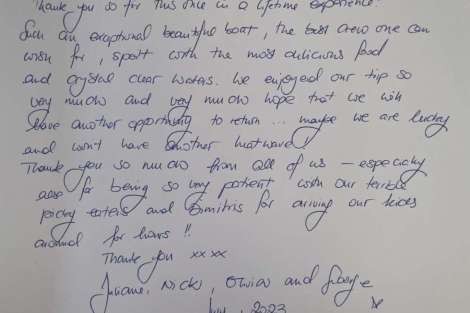 Thank you so for this once in a lifetime experience!
Such an exceptional beautiful boat, the best crew one can
wish for, spoilt with the most delicious food
and crystal clear waters. We enjoyed our trip so
very much and very much hope that we will
have another opportunity to return ... maybe we are lucky
and won't have another heatwave!
Thank you so much from all of us - especially
also for being so very patient with our terrible
picky eaters and Dimitris for driving our kids
around for hours !!
Thank you xx xx
Juliane, Nicks, Olivia and
2023